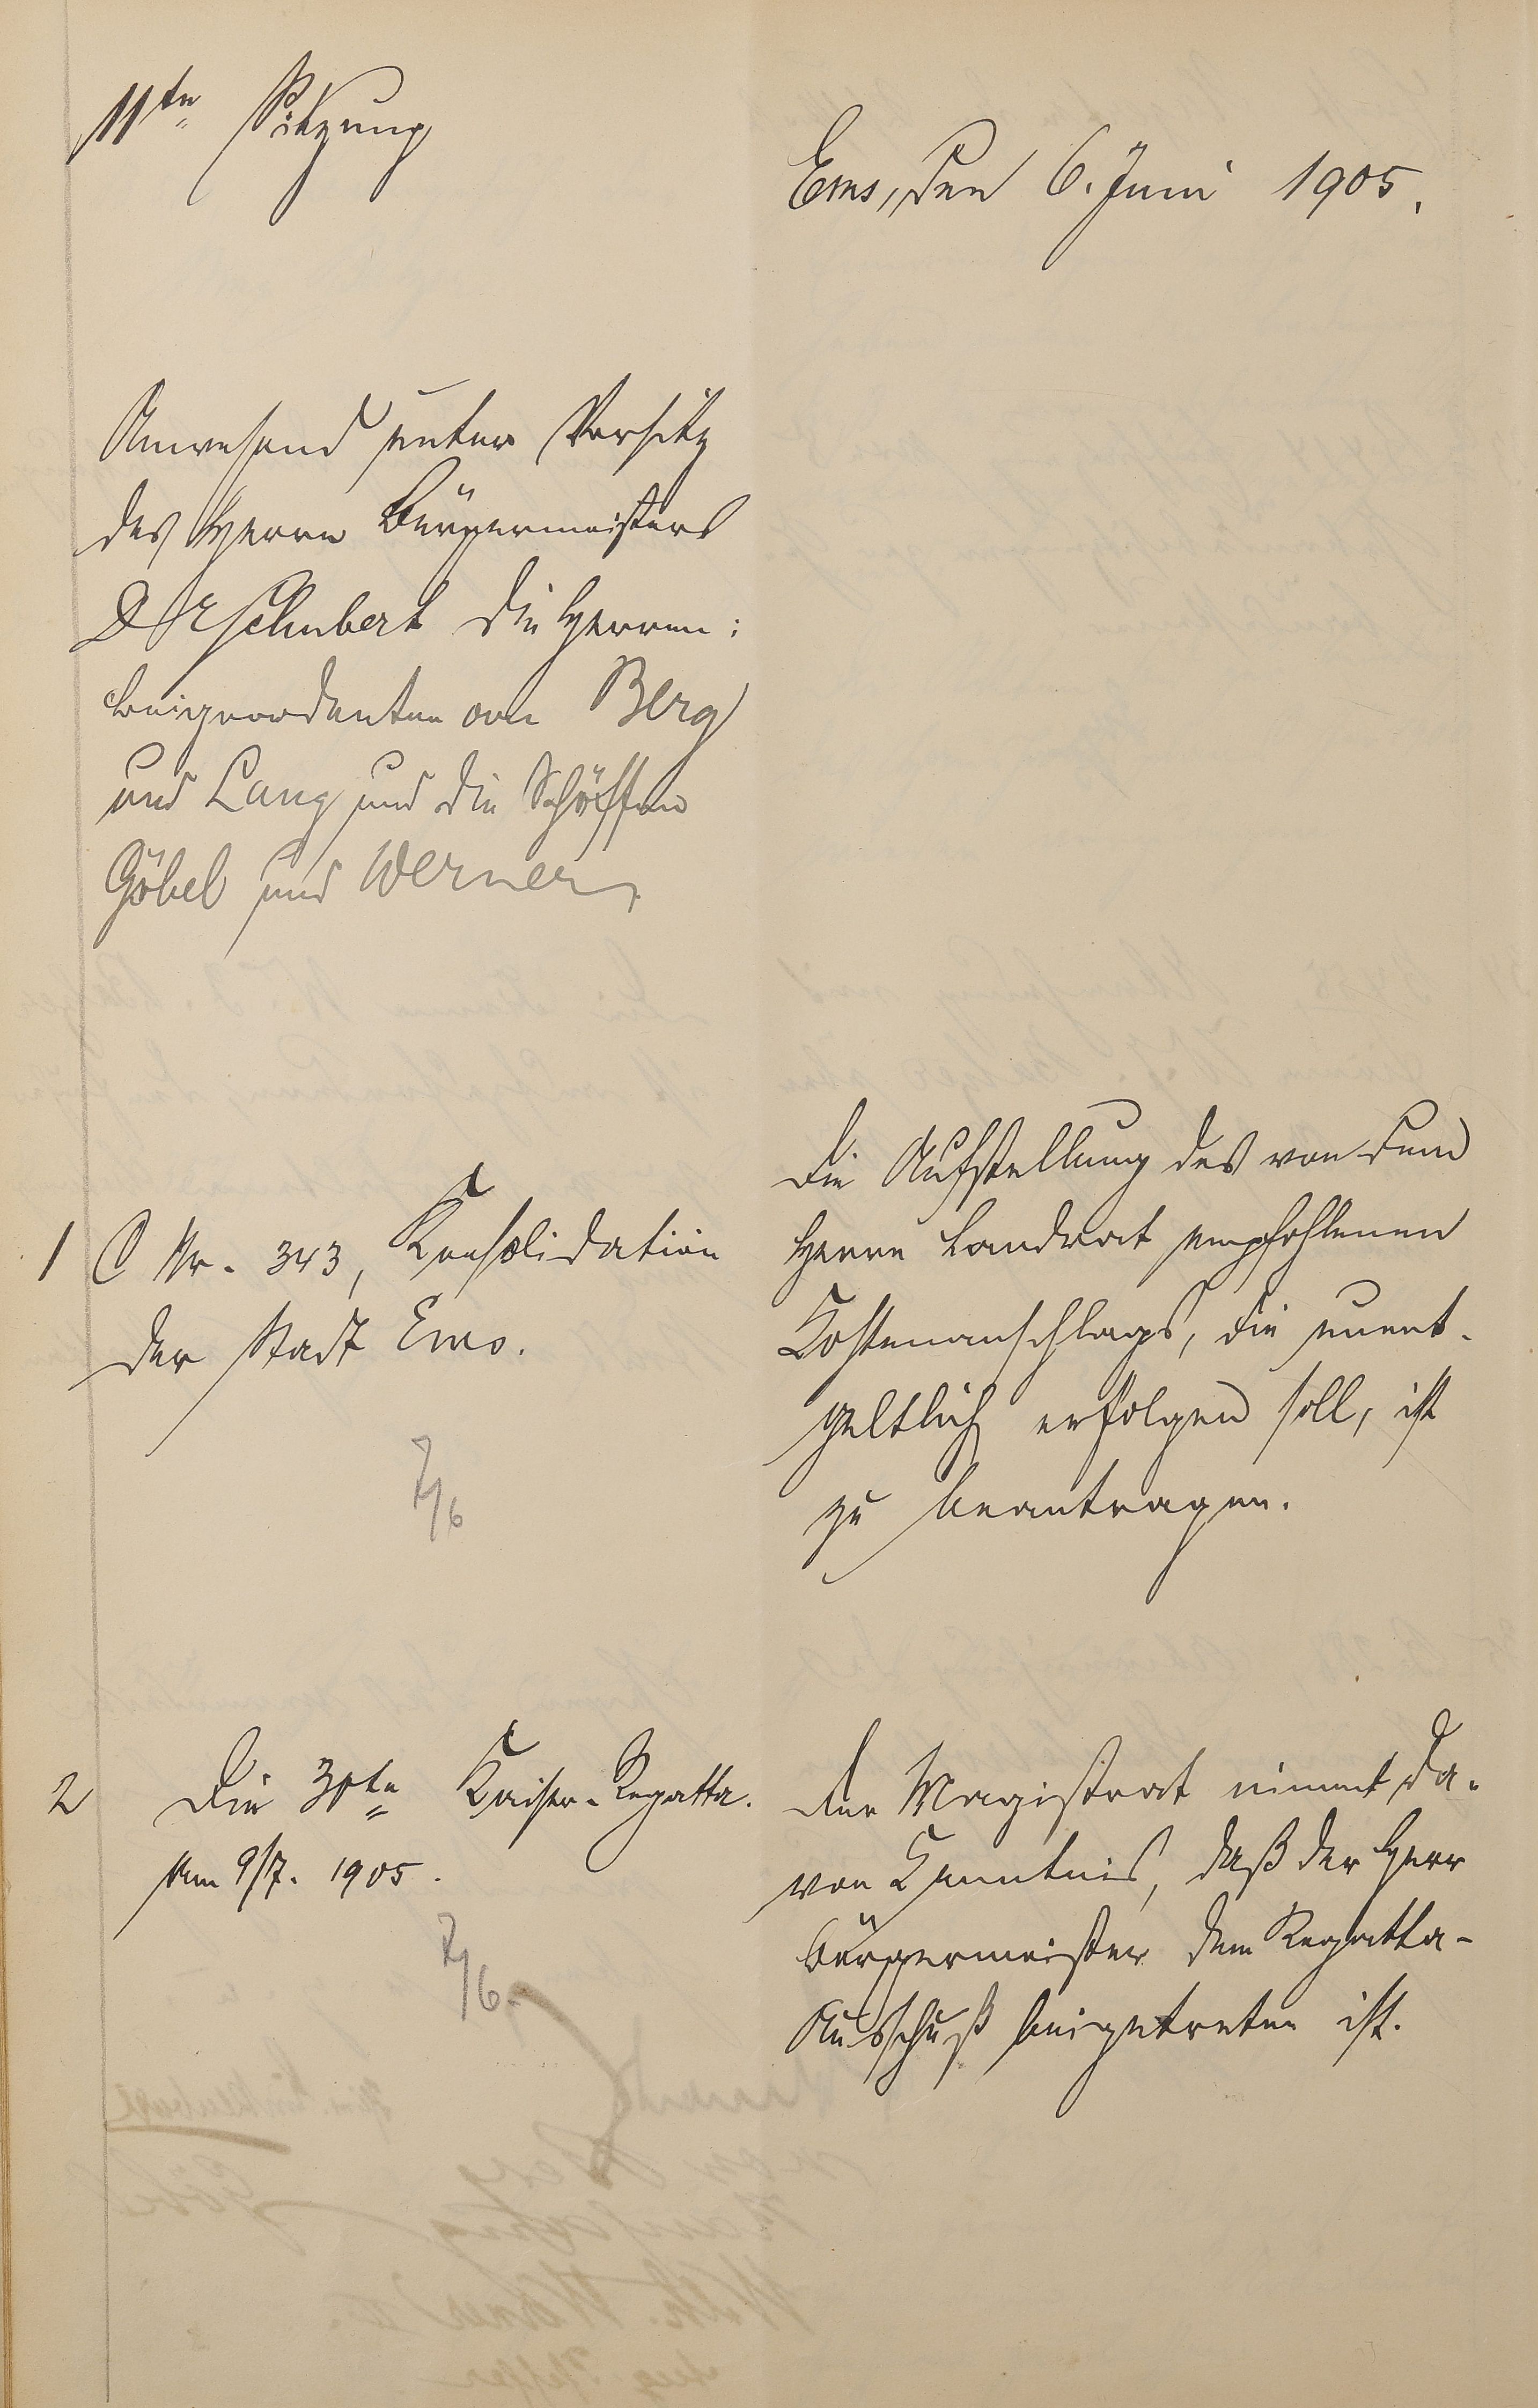 11te Sitzung
Ems, den 6. Juni 1905.
Anwesend unter Vorsitz
des Herrn Bürgermeisters
Dr Schubert die Herren:
Beigeordneten von Berg
und Lang und die Schöffen
Göbel und Werner.
1 C Nr. 343, Konsolidation
der Stadt Ems.
Die Aufstellung des von dem
Herrn Landrat empfohlenen
Kostenanschlags, die unent-
geltlich erfolgen soll, ist
zu beantragen.
7/6
2 Die 30te Kaiser-Regatta.
am 9/7. 1905.
Der Magistrat nimmt da-
von Kenntnis, daß der Herr
Bürgermeister dem Regatta-
Ausschuß beigetreten ist.
7/6.